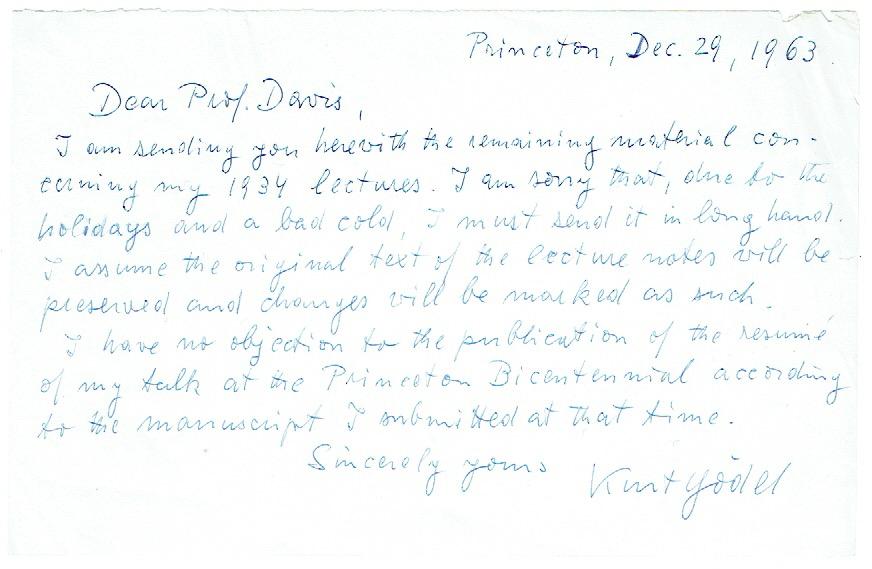 Princeton, Dec. 29, 1963.
Dear Prof. Davis,
I am sending you herewith the remaining material con-
cerning my 1934 lectures. I am sorry that, due to the
holidays and a bad cold, I must send it in long hand.
I assume the original text of the lecture notes will be
preserved and changes will be marked as such.
I have no objection to the publication of the resumé
of my talk at the Princeton Bicentennial according
to the manuscript I submitted at that time.
Sincerely yours
Kurt Gödel